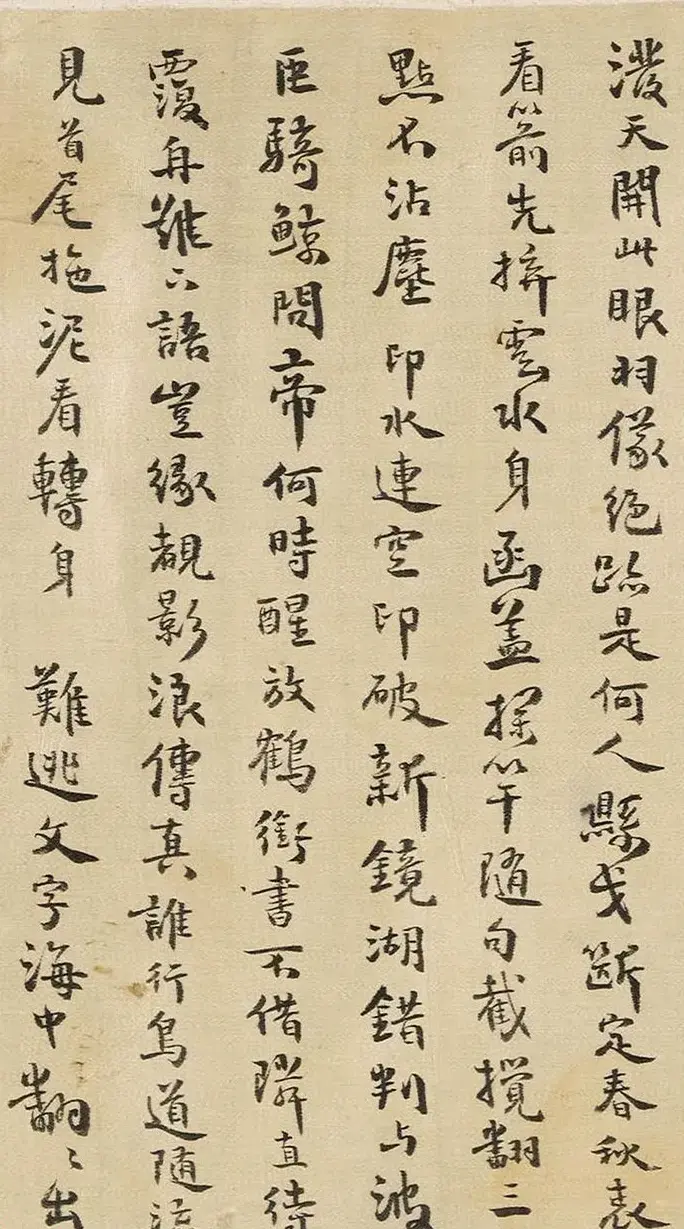 潑天開此眼羽儀絕跡是何人懸戈斷定春秋表
看箭先拚雲水身函蓋探竿隨句截攪翻三
點不沾塵 印水連空印破新鏡湖錯判与波
臣騎鯨問帝何時醒放鶴銜書不借隣直待
覆舟難下語豈緣覩影浪傳真誰行鳥道随流
見首尾拖泥看轉身 難逃文字海中翻〻出